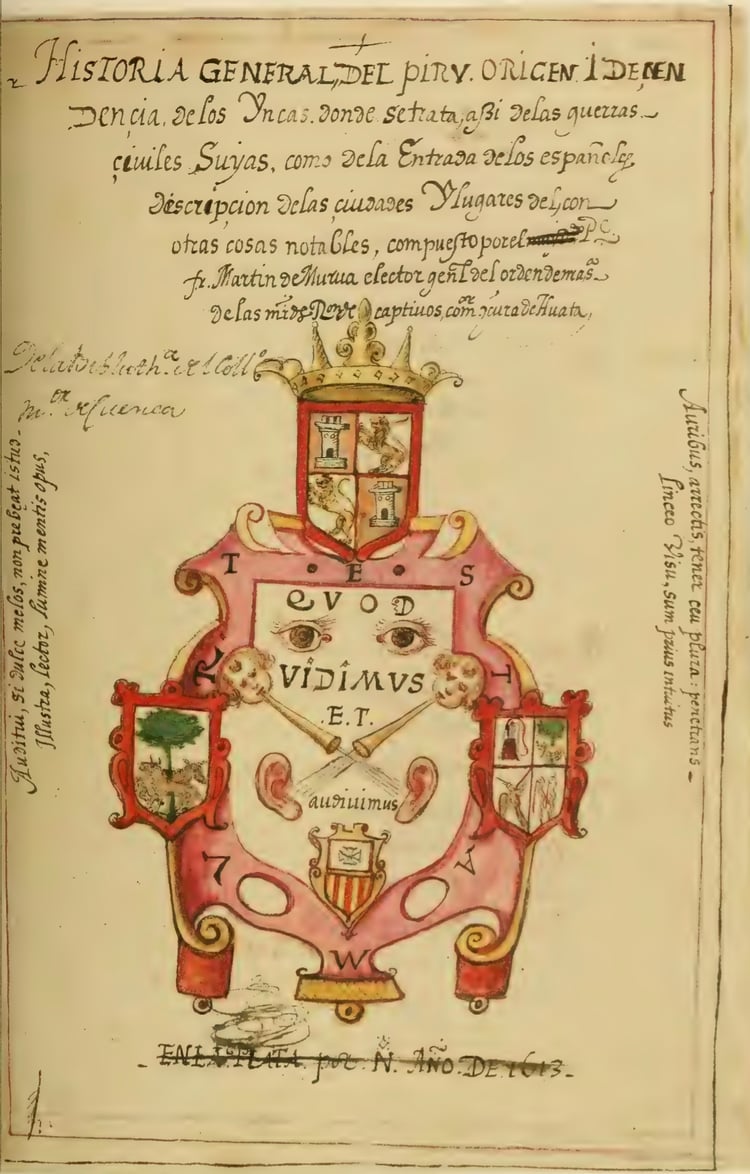 HISTORIA GENERAL, DEL PIRV. ORIGEN I DEÇEN
DENÇIA. de los Yncas. donde se trata, aßi de las guerras
çiviles Suyas, como de la Entrada de los españoles,
descripcion de las çiudades Y lugares del, con
otras cosas notables, compuesto por el P.e
fr. Martin de Murua elector genl. del orden de na. sa.
de las mrds. Rede captiuos, comor. y cura de Huata,
De la Biblioth.a del Coll.o
m.or de Cuenca
Auditui, si dulce melos, non prebeat istud.
Illustra, lector, lumine mentis opus,
Auribus, arrectis, tener ceu plura: penetrans
Linceo Visu, sum prius intuitus
T • E • S
QVOD
R T
VIDIMVS
.E.T.
audiuimus
L A
W
EN LA PLATA por N. AÑO. DE 1613.